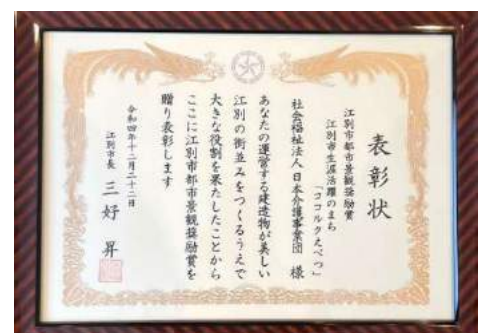 表彰状
江別市都市景観奨励賞
江別市生涯活躍のまち
「ココルクえべつ」
社会福祉法人日本介護事業団 様
あなたの運営する建造物が美しい
江別の街並みをつくるうえで
大きな役割を果たしたことから
ここに江別市都市景観奨励賞を
贈り表彰します
令和四年十二月二十二日
江別市長 三好 昇